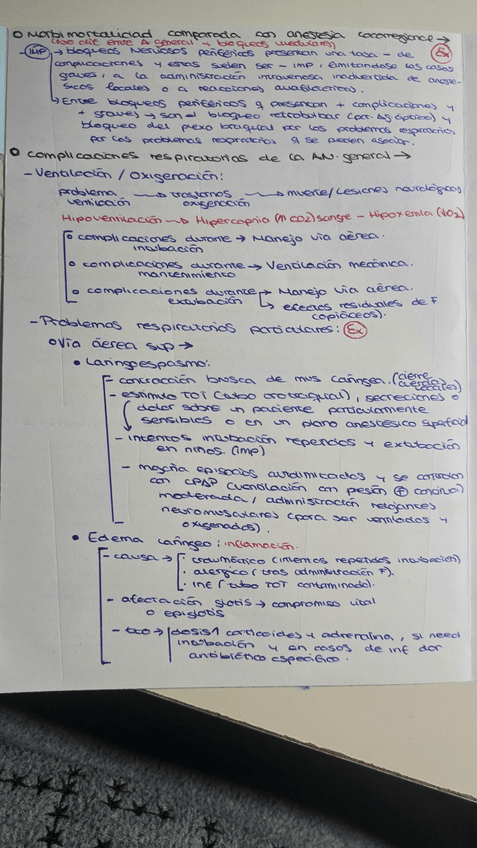 o Morbimortalidad comparada con anestesia locorregional →
(No dif. entre A general y bloqueos medulares)
- IMP → bloqueos nerviosos periféricos presentan una tasa - de Ex
complicaciones y estas suelen ser - imp, limitandose los casos
graves, a la administración intravenosa inadvertida de anesté-
sicos locales o a reacciones anafilácticas.
↳ Entre bloqueos periféricos q presentan + complicaciones y
+ graves → son el bloqueo retrobulbar (por. Ag óptico) y
bloqueo del plexo braquial por los problemas respiratorios
por los problemas respiratorios q se pueden asociar.
o complicaciones respiratorias de la AN. general →
- Ventilación / Oxigenación:
problema ventilación → trastornos oxigenación → muerte/Lesiones neurológicas
Hipoventilación → Hipercapnia (↑CO2) sangre - Hipoxemia (↓O2)
o complicaciones durante intubación → Manejo vía aérea.
o complicaciones durante mantenimiento → Ventilación mecánica.
o complicaciones durante extubación → Manejo vía aérea.
↳ efectos residuales de F
(opiáceos).
- Problemas respiratorios particulares: Ex
o Vía aérea sup →
• Laringoespasmo:
- contracción brusca de mus laríngea. (cierre cuerdas vocales)
- estímulo TOT (tubo orotraqual), secreciones o
dolor sobre un paciente particularmente
sensibles o en un plano anestésico superficial
- intentos intubación repetidos y extubación
en niños. (imp)
- mayoría episodios autolimitados y se controlan
con CPAP (ventilación con presión ⊕ continua)
moderada / administración relajantes
neuromusculares (para ser ventilados y
oxigenados).
• Edema laríngeo: inflamación.
- causa → · traumático (intentos repetidos intubación)
· alergica (tras administración F).
· inf (tubo TOT contaminado).
- afectación glotis → compromiso vital
o epiglotis
- tto → dosis↑ corticoides y adrenalina, si need
intubación y en casos de inf dar
antibiótico específico.